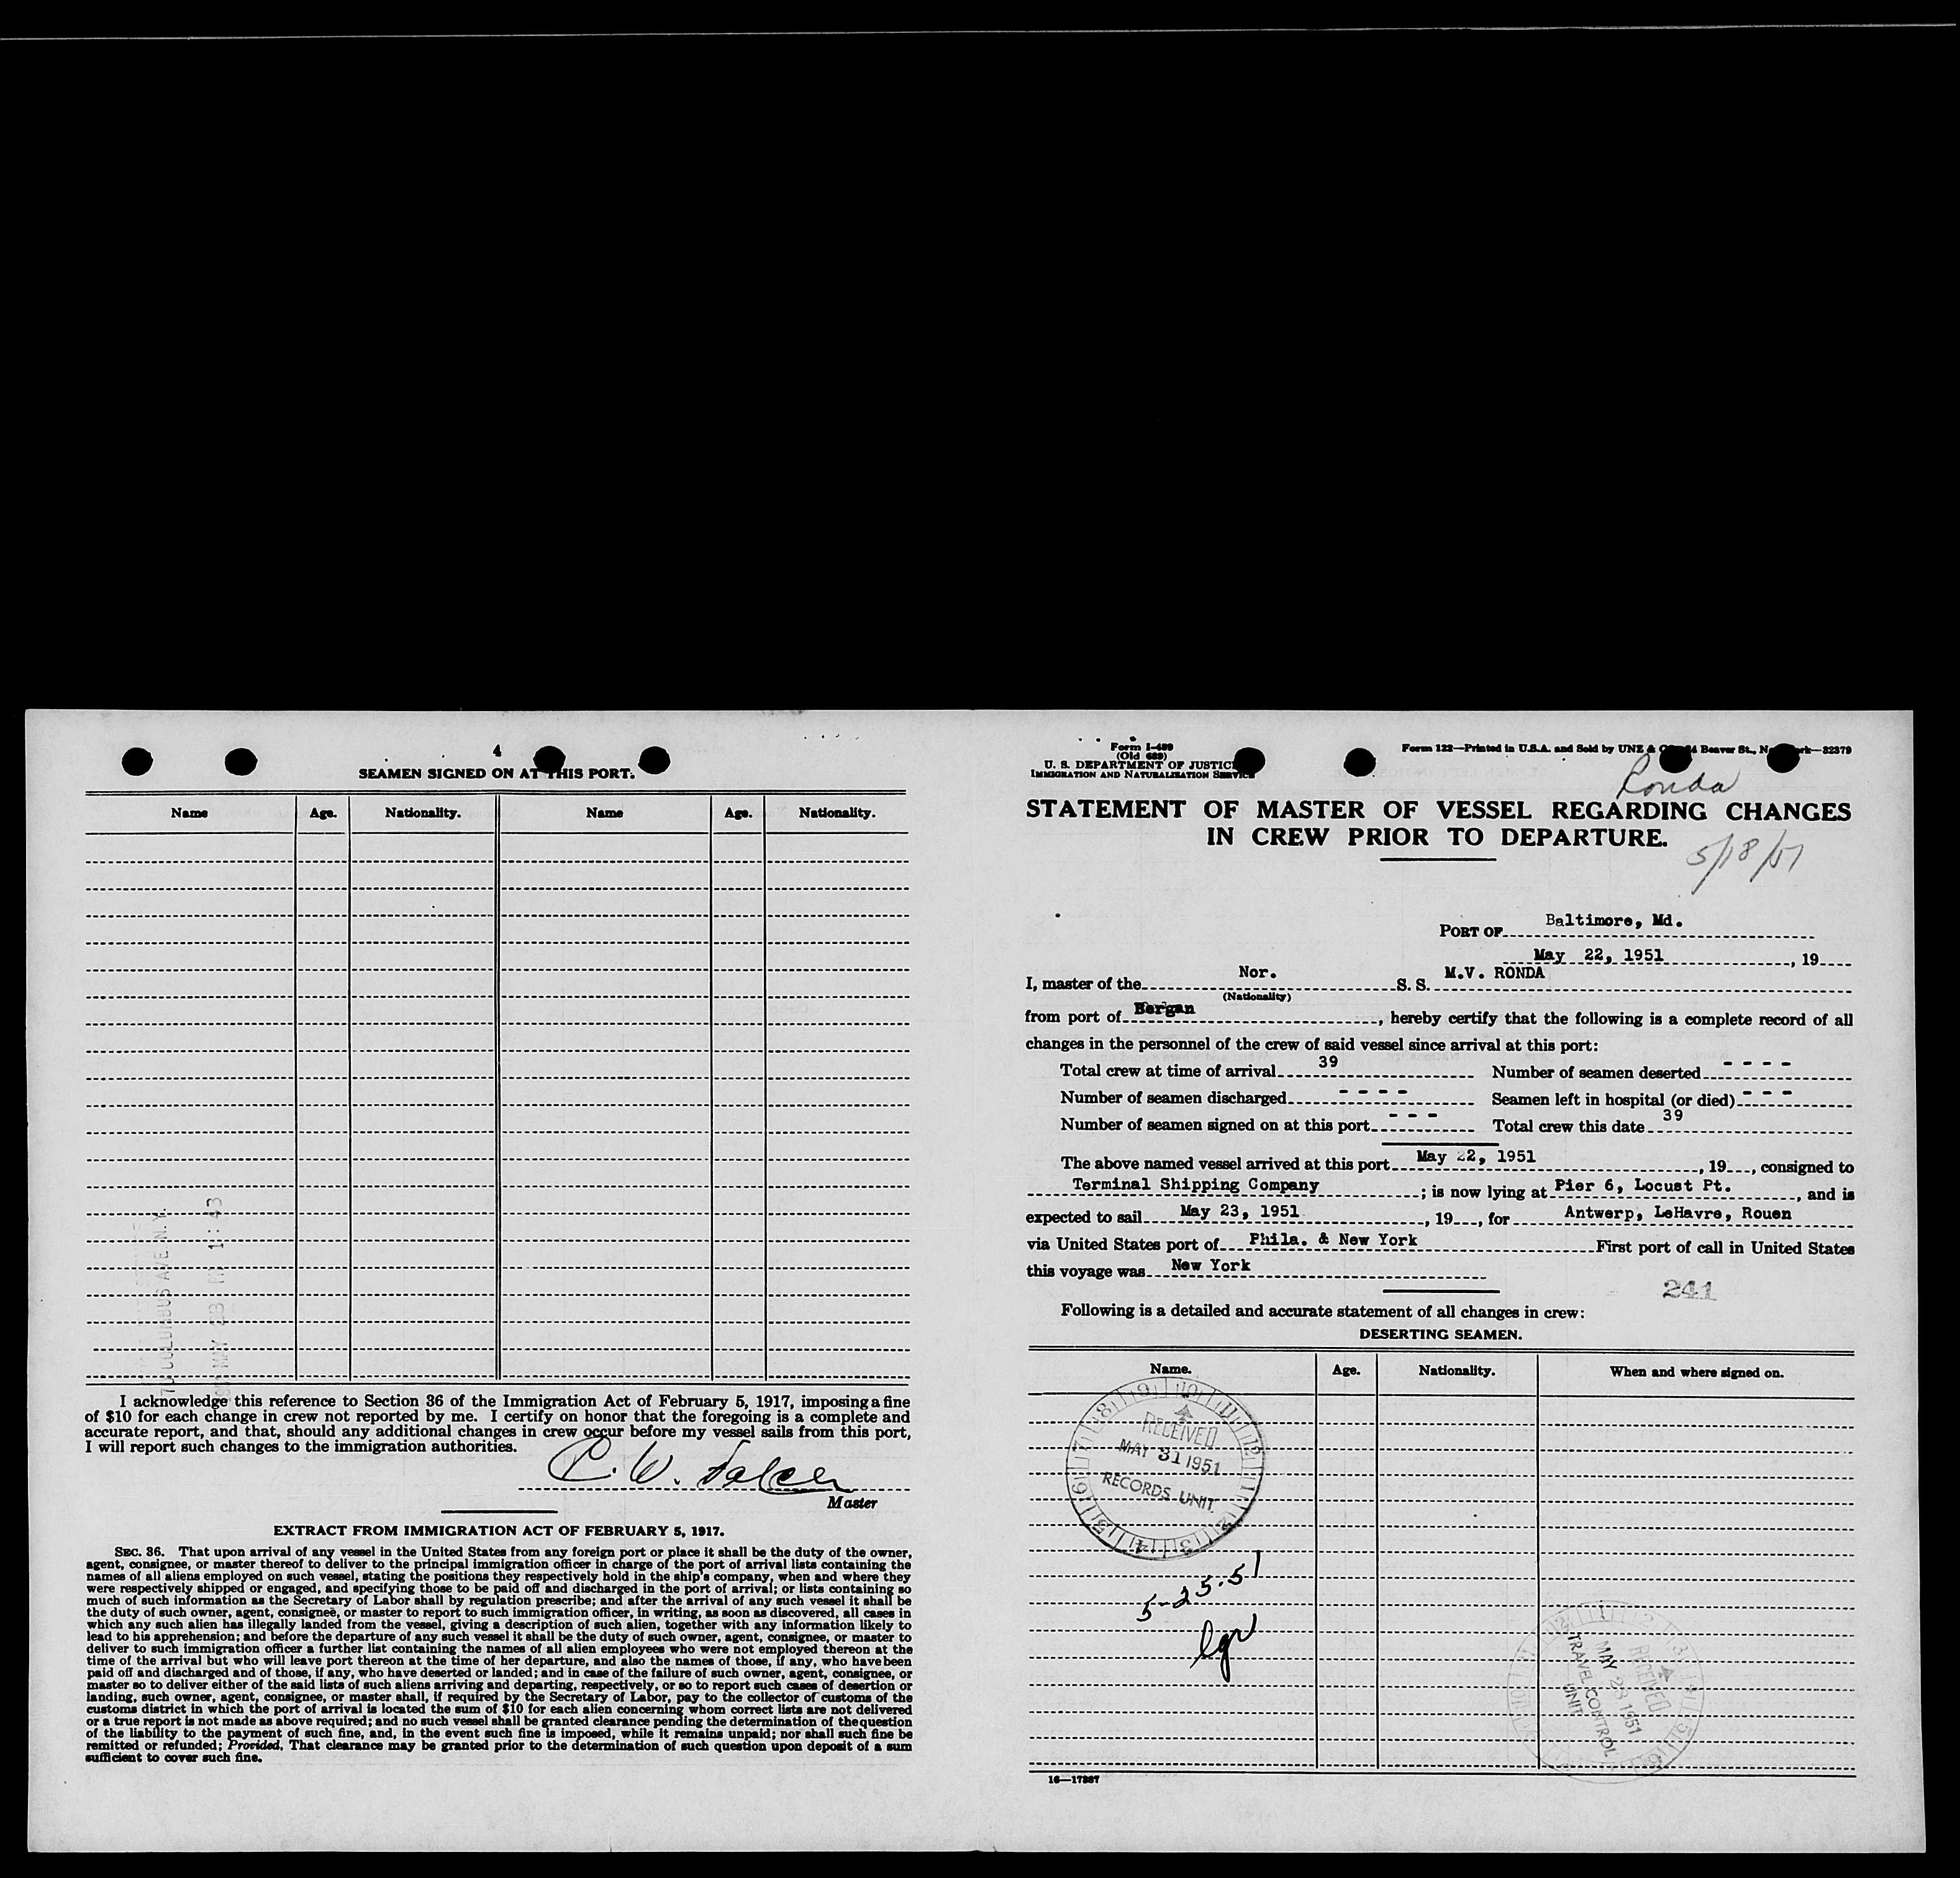 4
SEAMEN SIGNED ON AT THIS PORT.
Name Age. Nationality. Name Age. Nationality.
COLUMBUS AVE. N.Y.
MAY 28 PM 1:43
I acknowledge this reference to Section 36 of the Immigration Act of February 5, 1917, imposing a fine
of $10 for each change in crew not reported by me. I certify on honor that the foregoing is a complete and
accurate report, and that, should any additional changes in crew occur before my vessel sails from this port,
I will report such changes to the immigration authorities.
C. W.
Master
EXTRACT FROM IMMIGRATION ACT OF FEBRUARY 5, 1917.
SEC. 36. That upon arrival of any vessel in the United States from any foreign port or place it shall be the duty of the owner,
agent, consignee, or master thereof to deliver to the principal immigration officer in charge of the port of arrival lists containing the
names of all aliens employed on such vessel, stating the positions they respectively hold in the ship's company, when and where they
were respectively shipped or engaged, and specifying those to be paid off and discharged in the port of arrival; or lists containing so
much of such information as the Secretary of Labor shall by regulation prescribe; and after the arrival of any such vessel it shall be
the duty of such owner, agent, consignee, or master to report to such immigration officer, in writing, as soon as discovered, all cases in
which any such alien has illegally landed from the vessel, giving a description of such alien, together with any information likely to
lead to his apprehension; and before the departure of any such vessel it shall be the duty of such owner, agent, consignee, or master to
deliver to such immigration officer a further list containing the names of all alien employees who were not employed thereon at the
time of the arrival but who will leave port thereon at the time of her departure, and also the names of those, if any, who have been
paid off and discharged and of those, if any, who have deserted or landed; and in case of the failure of such owner, agent, consignee, or
master so to deliver either of the said lists of such aliens arriving and departing, respectively, or so to report such cases of desertion or
landing, such owner, agent, consignee, or master shall, if required by the Secretary of Labor, pay to the collector of customs of the
customs district in which the port of arrival is located the sum of $10 for each alien concerning whom correct lists are not delivered
or a true report is not made as above required; and no such vessel shall be granted clearance pending the determination of the question
of the liability to the payment of such fine, and, in the event such fine is imposed, while it remains unpaid; nor shall such fine be
remitted or refunded; Provided, That clearance may be granted prior to the determination of such question upon deposit of a sum
sufficient to cover such fine.
Form I-489
(Old 689)
U. S. DEPARTMENT OF JUSTICE
IMMIGRATION AND NATURALIZATION SERVICE
Form 122—Printed in U.S.A. and Sold by UNZ & Beaver St., New York—32379
Ronda
STATEMENT OF MASTER OF VESSEL REGARDING CHANGES
IN CREW PRIOR TO DEPARTURE.
5/18/51
PORT OF Baltimore, Md.
May 22, 1951, 19
I, master of the Nor. S. S. M.V. RONDA
(Nationality)
from port of Bergan, hereby certify that the following is a complete record of all
changes in the personnel of the crew of said vessel since arrival at this port:
Total crew at time of arrival 39 Number of seamen deserted - - - -
Number of seamen discharged - - - - Seamen left in hospital (or died) - - -
Number of seamen signed on at this port - - - Total crew this date 39
The above named vessel arrived at this port May 22, 1951, 19, consigned to
Terminal Shipping Company; is now lying at Pier 6, Locust Pt., and is
expected to sail May 23, 1951, 19, for Antwerp, LeHavre, Rouen
via United States port of Phila. & New York First port of call in United States
this voyage was New York
241
Following is a detailed and accurate statement of all changes in crew:
DESERTING SEAMEN.
Name. Age. Nationality. When and where signed on.
RECEIVED
MAY 31 1951
RECORDS UNIT.
5-25-51
lgr
RECEIVED
MAY 28 1951
TRAVEL CONTROL
UNIT
16—17887